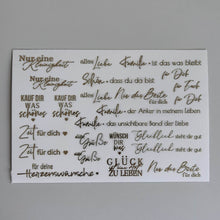 Nur eine Kleinigkeit
alles Liebe
Familie - ist das was bleibt
Nur eine Kleinigkeit
Schön - dass du da bist
für Dich
für Euch
für Dich
KAUF DIR WAS schönes
alles Liebe
Nur das Beste für dich
KAUF DIR WAS schönes
Familie - der Anker in meinem Leben
Familie - das unsichtbare Band der Liebe
Zeit für dich
Zeit für dich
Grüße
Grüße
WÜNSCH DIR WAS
Glückllich steht dir gut
Glücklich steht dir gut
für deine Herzenswünsche
GLÜCK
ZU LEBEN
Nur das Beste für Dich